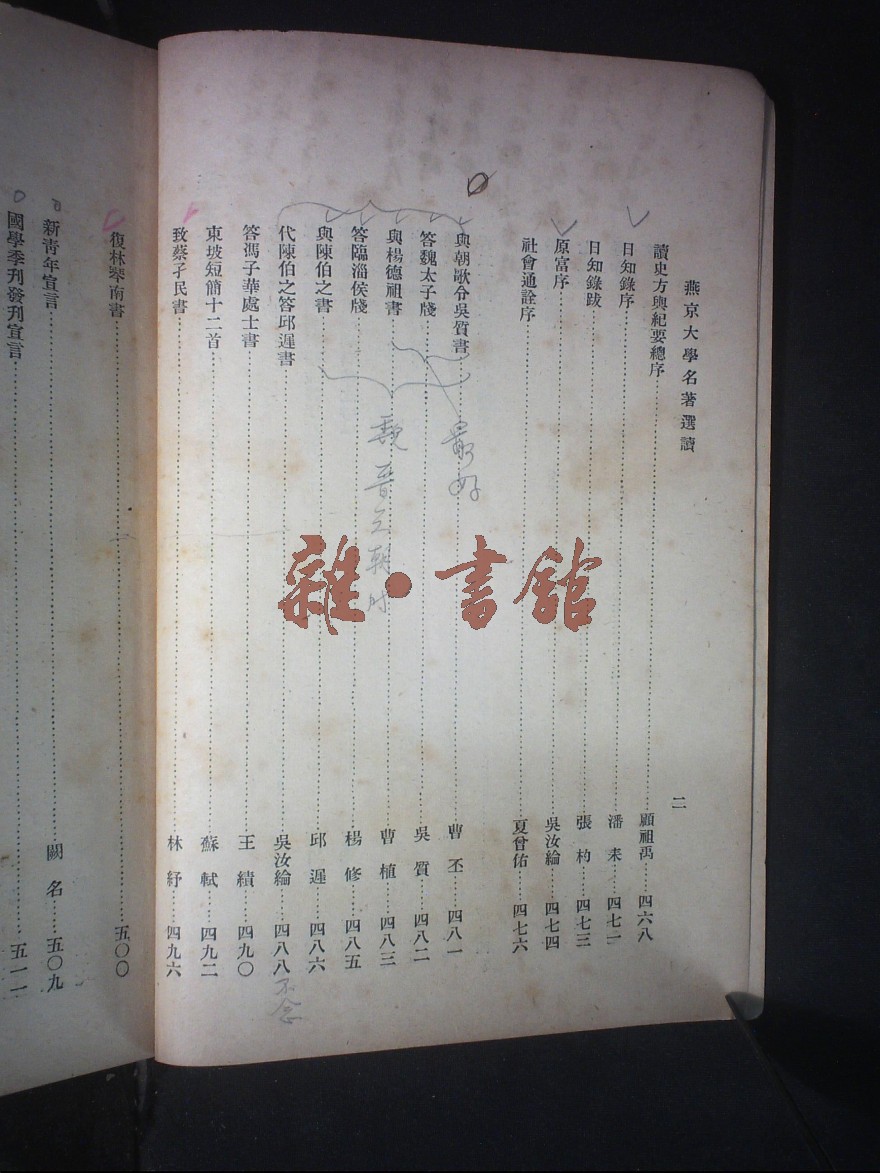 燕京大學名著選讀
二
讀史方輿紀要總序 顧祖禹 四六八
日知錄序 潘耒 四七一
日知錄跋 張杓 四七三
原富序 吳汝綸 四七四
社會通詮序 夏曾佑 四七六
與朝歌令吳質書 曹丕 四八一
答魏太子牋 吳質 四八二
與楊德祖書 曹植 四八三
答臨淄侯牋 楊修 四八五
與陳伯之書 邱遲 四八六
代陳伯之答邱遲書 吳汝綸 四八八 不念
答馮子華處士書 王績 四九〇
東坡短簡十二首 蘇軾 四九二
致蔡孑民書 林紓 四九六
最好
魏晉六朝時
雜·書館
復林琴南書 五〇〇
新靑年宣言 闕名 五〇九
國學季刊發刊宣言 五一一